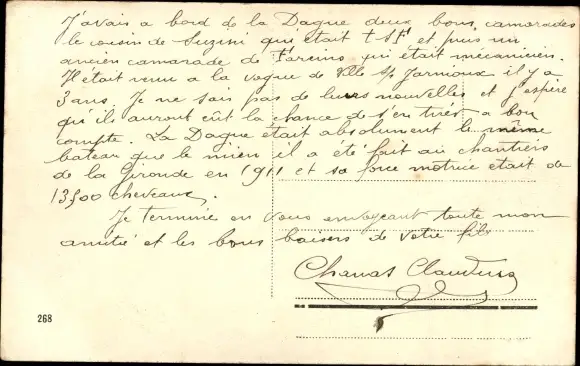 J'avais a bord de la Dague deux bons camarades
le cousin de Suzini qui était TSF et puis un
ancien camarade de qui était mécanicien.
Il était venu a la vogue de Ville s/s Jarnioux il y a
3 ans. Je ne sais pas de leurs nouvelles et j'espère
qu'ils auront eût la chance de s'en tirer a bon
compte. La Dague était absolument le même
bateau que le mien il a été fait au chantiers
de la Gironde en 1911 et sa force motrice était de
13500 chevaux.
Je termine en vous envoyant toute mon
amitié et les bons baisers de votre fils
Chanas Claudius
268